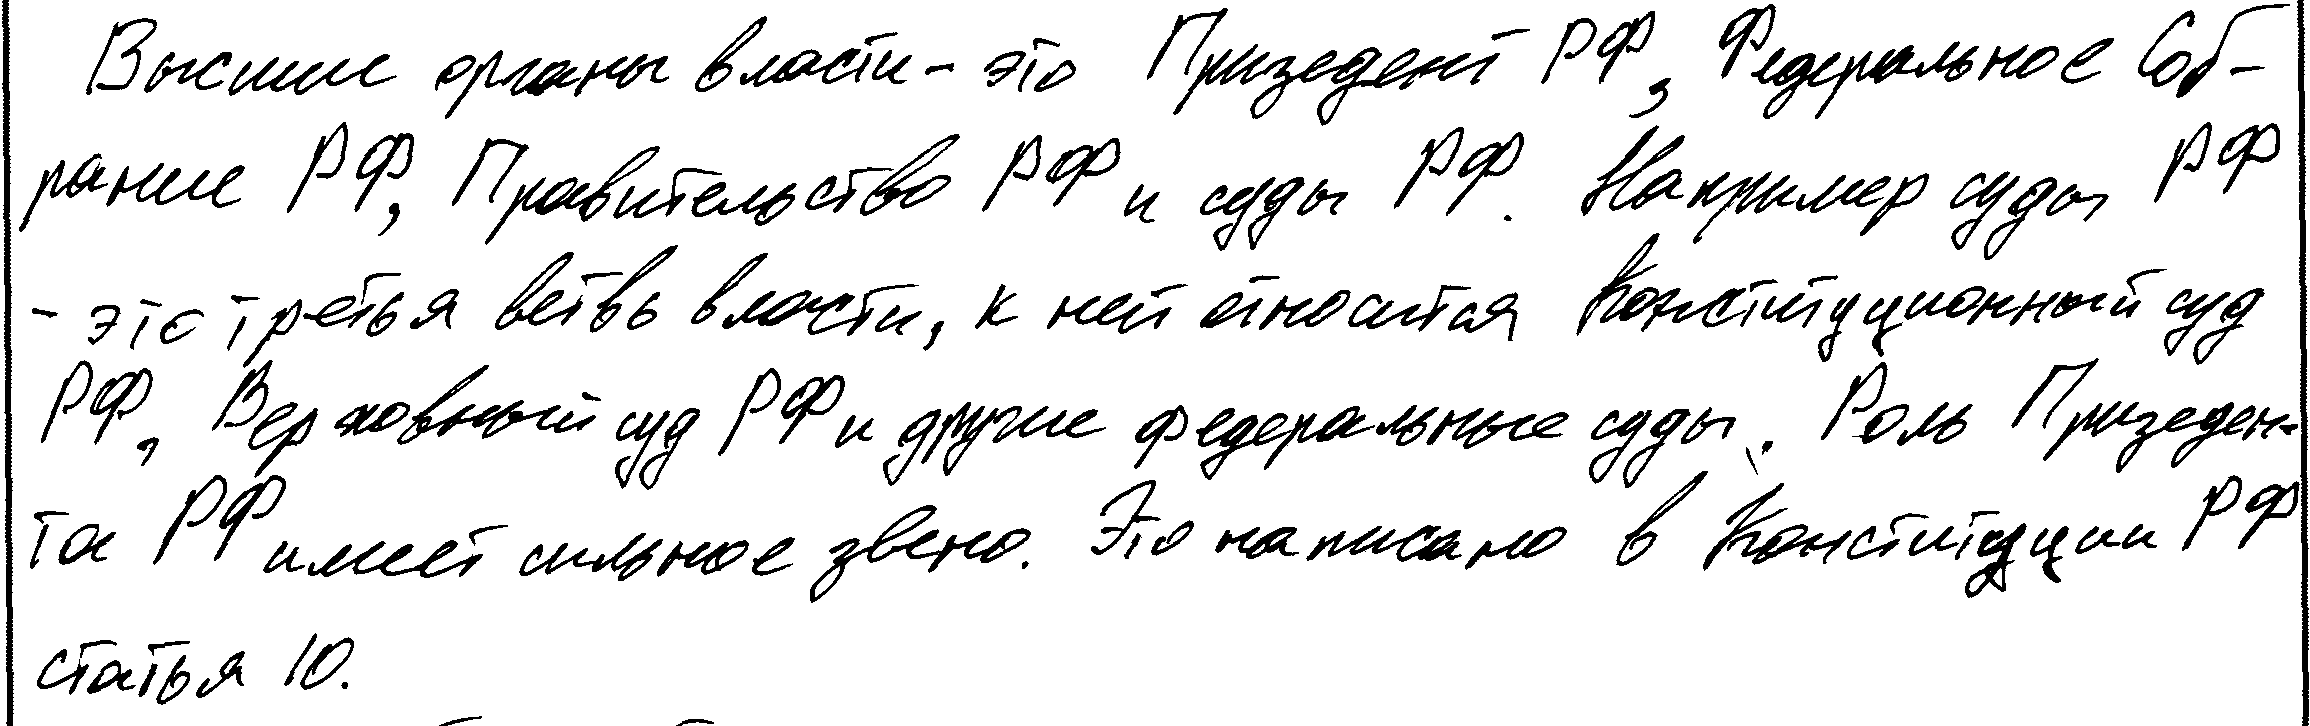 Высшие органы власти - это Призедент РФ, Федеральное Соб-
рание РФ, Правительство РФ и суды РФ. Например суды РФ
- это третья ветвь власти, к ней относится Конституционный суд
РФ, Верховный суд РФ и другие федеральные суды. Роль Призеден-
та РФ имеет сильное звено. Это написано в Конституции РФ
статья 10.